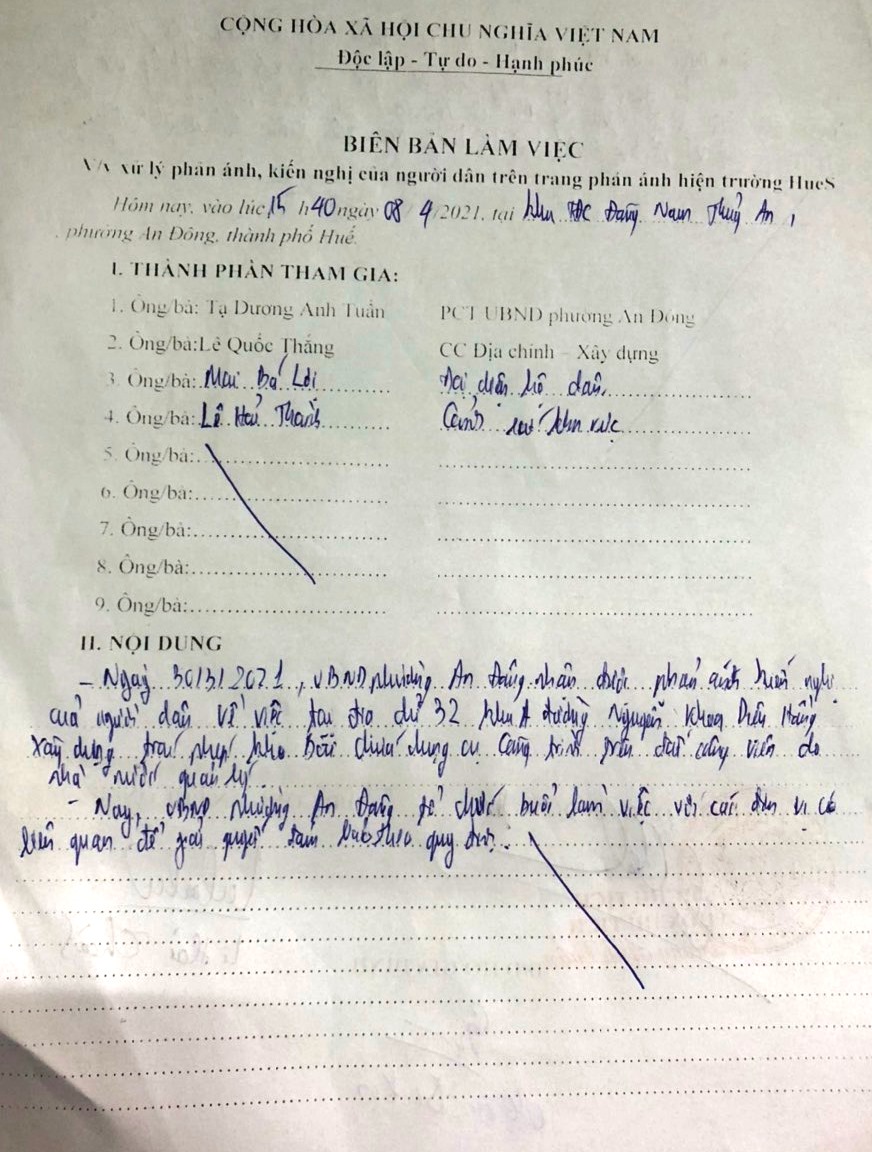 CỘNG HÒA XÃ HỘI CHỦ NGHĨA VIỆT NAM
Độc lập - Tự do - Hạnh phúc
BIÊN BẢN LÀM VIỆC
V/v xử lý phản ánh, kiến nghị của người dân trên trang phản ánh hiện trường HueS
Hôm nay, vào lúc 15 h 40 ngày 08/4/2021, tại khu TĐC Đông Nam Thuỷ An,
phường An Đông, thành phố Huế.
I. THÀNH PHẦN THAM GIA:
1. Ông/bà: Tạ Dương Anh Tuấn PCT UBND phường An Đông
2. Ông/bà: Lê Quốc Thắng CC Địa chính – Xây dựng
3. Ông/bà: Mai Bá Lợi Đại diện hộ dân
4. Ông/bà: Lê Hữu Cảnh khu vực
5. Ông/bà:
6. Ông/bà:
7. Ông/bà:
8. Ông/bà:
9. Ông/bà:
II. NỘI DUNG
- Ngày 30/3/2021, UBND phường An Đông nhận được phản ánh kiến nghị
của người dân về việc tại địa chỉ 32 khu A đường Nguyễn Khoa Diệu Hằng
xây dựng trái phép kho bãi chứa dụng cụ công trình trên đất công viên do
nhà nước quản lý.
- Nay, UBND phường An Đông tổ chức buổi làm việc với các đơn vị có
liên quan để giải quyết đảm bảo theo quy định.